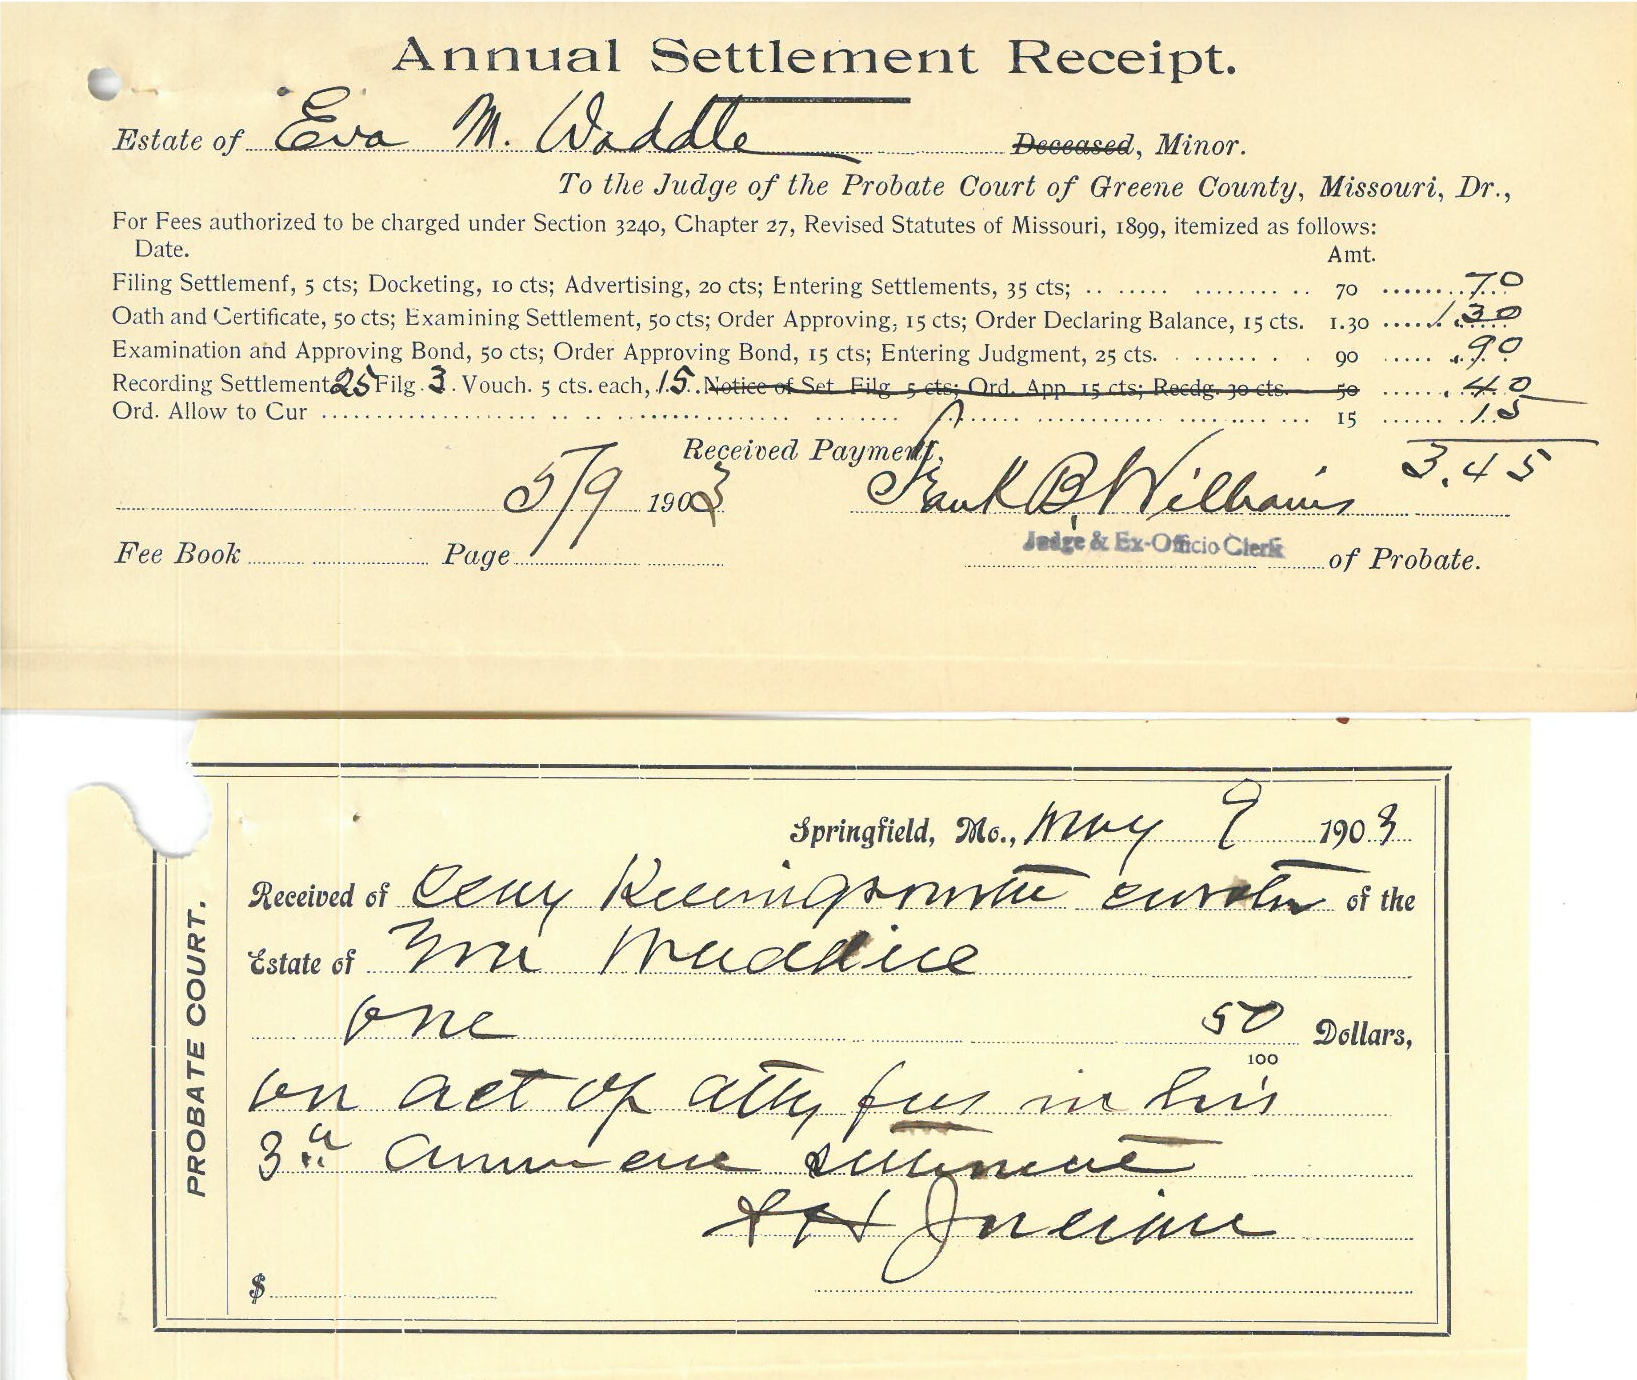 Annual Settlement Receipt.
Estate of Eva M. Waddle Deceased, Minor.
To the Judge of the Probate Court of Greene County, Missouri, Dr.,
For Fees authorized to be charged under Section 3240, Chapter 27, Revised Statutes of Missouri, 1899, itemized as follows:
Date. Amt.
Filing Settlemenf, 5 cts; Docketing, 10 cts; Advertising, 20 cts; Entering Settlements, 35 cts; 70 .70
Oath and Certificate, 50 cts; Examining Settlement, 50 cts; Order Approving, 15 cts; Order Declaring Balance, 15 cts. 1.30 1.30
Examination and Approving Bond, 50 cts; Order Approving Bond, 15 cts; Entering Judgment, 25 cts. 90 .90
Recording Settlement 25 Filg. 3. Vouch. 5 cts. each, 15. Notice of Set. Filg. 5 cts; Ord. App. 15 cts; Recdg. 30 cts. 50 .40
Ord. Allow to Cur 15 .15
Received Payment, 3.45
5/9 1903 Frank B. Williams
Judge & Ex-Officio Clerk
Fee Book Page of Probate.
PROBATE COURT.
Springfield, Mo., May 9 1903
Received of Killingsworth curator of the
Estate of Waddle
one 50 Dollars,
100
on act of atty fees in his
3rd annual settlement
$